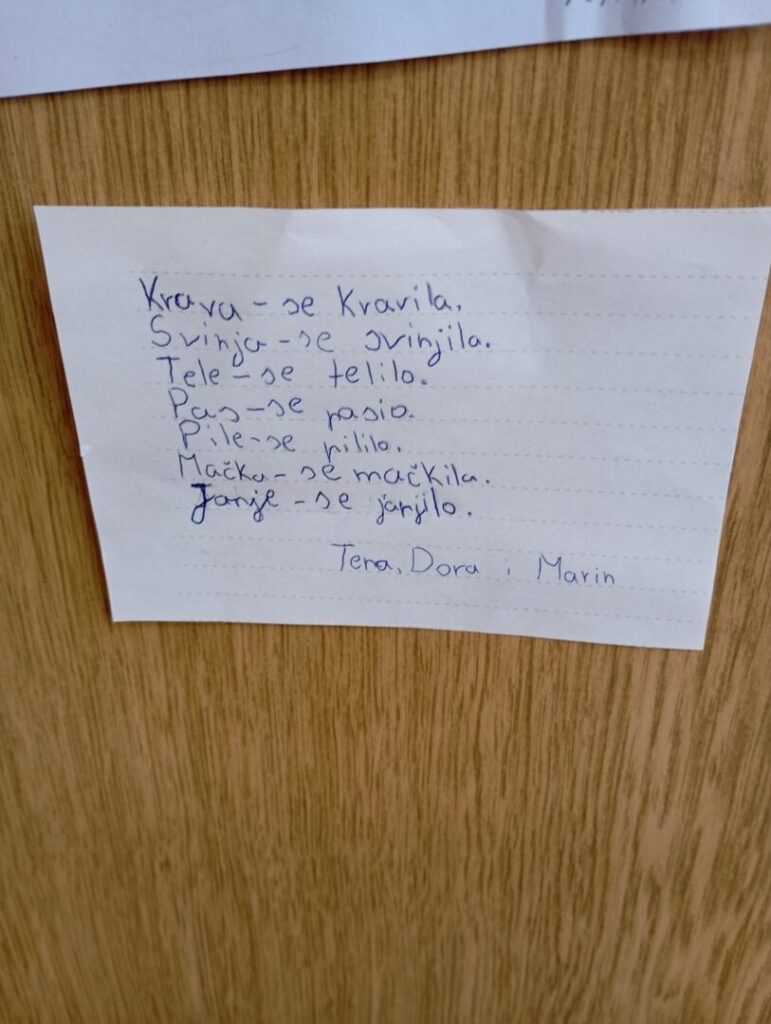 Krava - se Kravila.
Svinja - se svinjila.
Tele - se telilo.
Pas - se pasio.
Pile - se pililo.
Mačka - se mačkila.
Janje - se janjilo.
Tena, Dora i Marin